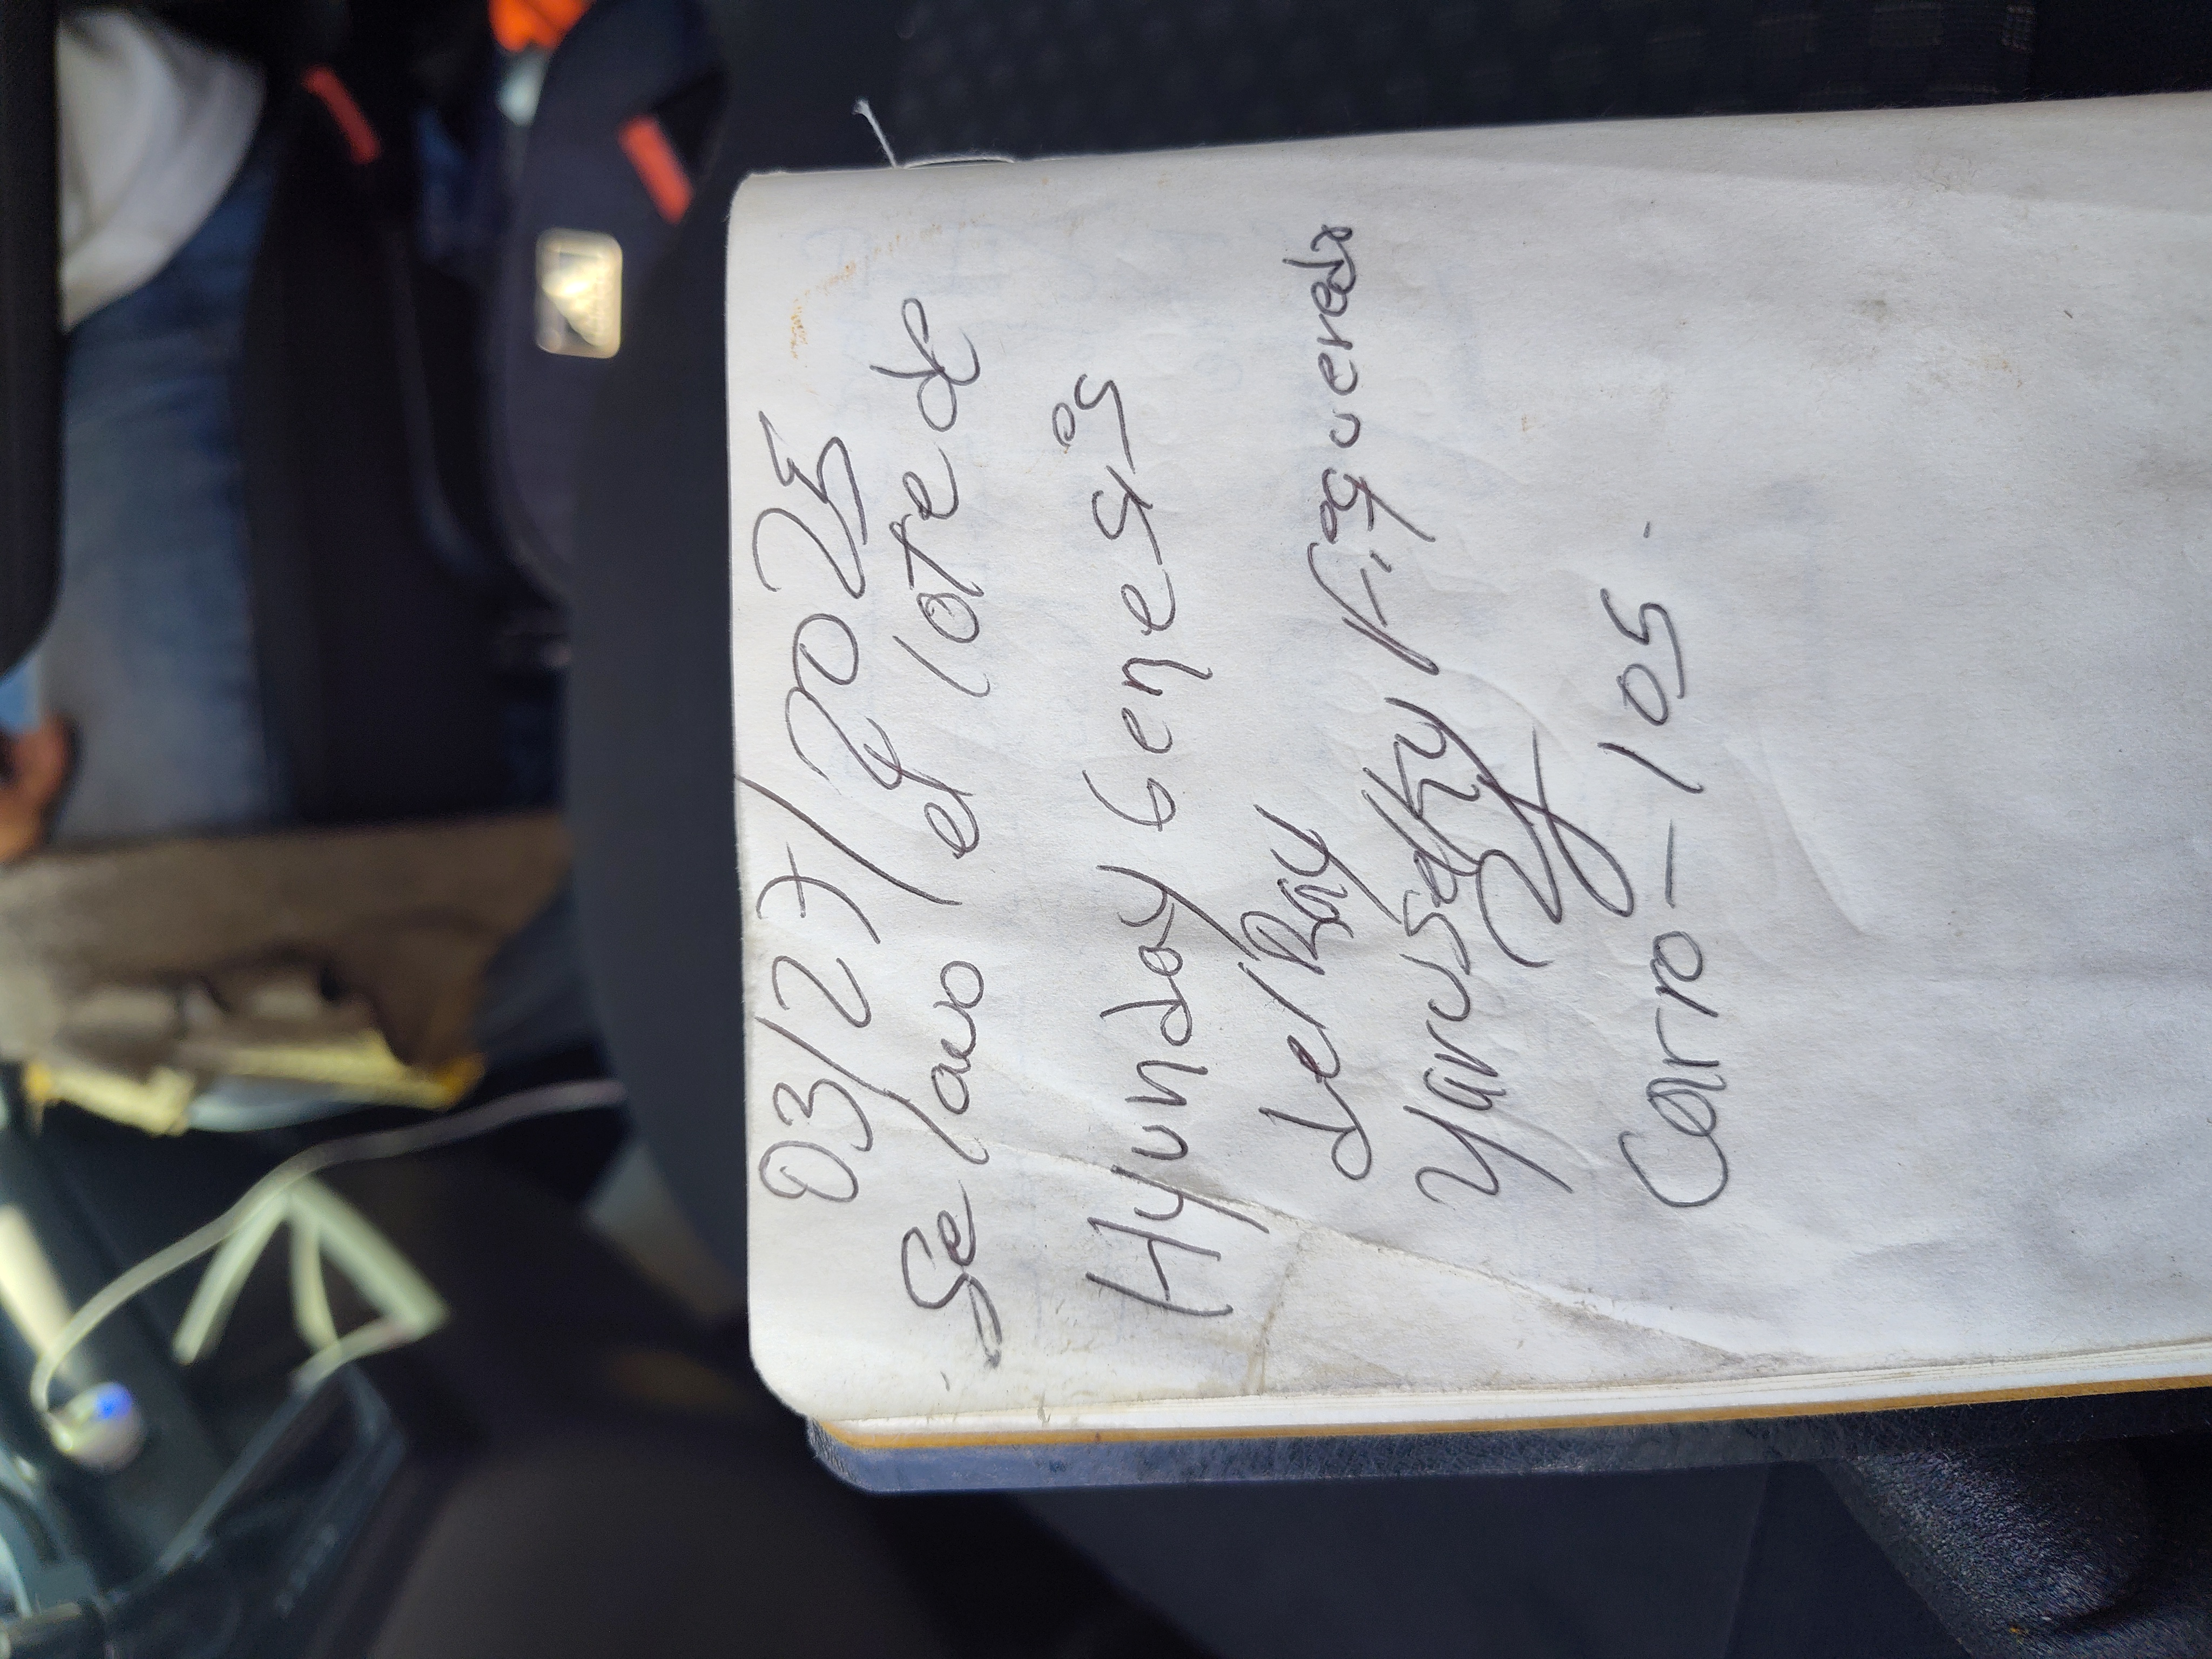 03/27/2025
Se lavo el lote de
Hyunday Genesis
del Ray
Yarusethy Figueredx
Carro - 105.